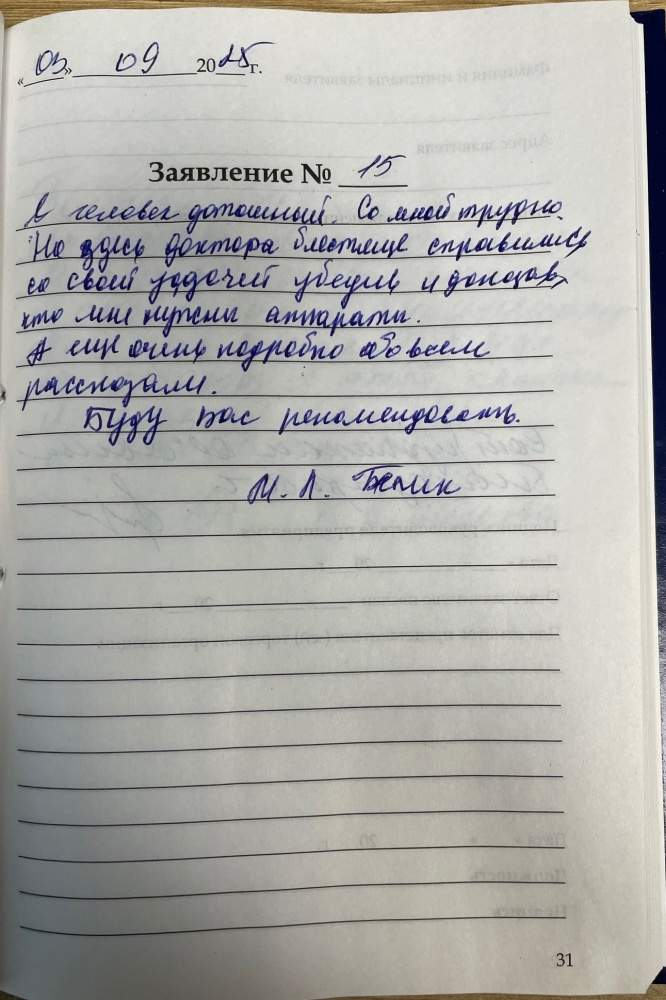 «03» 09 2025 г.
Заявление № 15
Я человек дотошный. Со мной трудно.
Но здесь доктора блестяще справились
со своей задачей убедив и доказав,
что мне нужны аппараты.
А еще очень подробно обо всем
рассказали.
Буду вас рекомендовать.
М. Л.
31